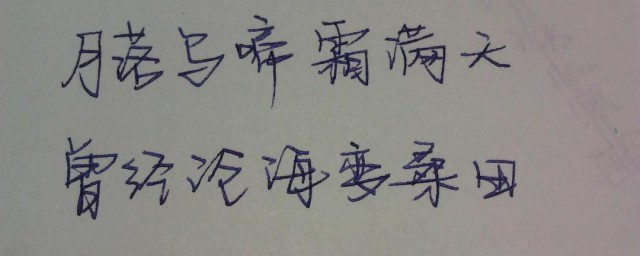 月落乌啼霜满天
曾经沧海变桑田